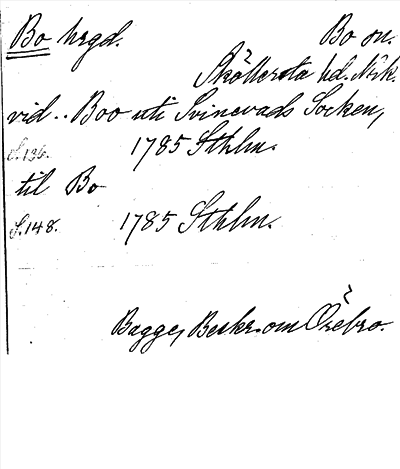 Bo hrgd. Bo sn.
Sköllersta hd. Nrk.
vid .. Boo uti Svinevads Socken,
S. 136. 1785 Sthlm.
til Bo
S. 148. 1785 Sthlm.
Bagge, Beskr. om Örebro.